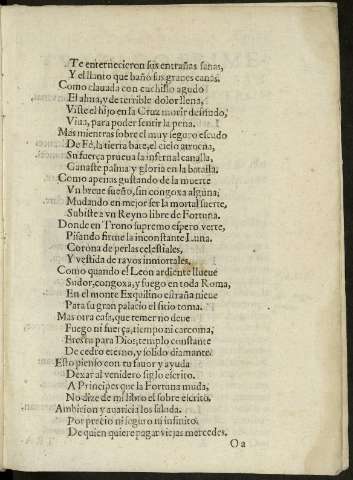 Te enternecieron sus entrañas sanas,
Y el llanto que baño sus graues canas.
Como clauada con cuchillo agudo
El alma, y de terrible dolor llena,
Viste el hijo en la Cruz morir desnudo,
Viua, para poder sentir la pena.
Mas mientras sobre el muy seguro escudo
De Fè, la tierra bate, el cielo atruena,
Su fuerça prueua la infernal canalla,
Ganaste palma y gloria en la batalla.
Como apenas gustando de la muerte
Vn breue sueño, sin congoxa alguna,
Mudando en mejor ser la mortal suerte,
Subiste a vn Reyno libre de Fortuna.
Donde en Trono supremo espero verte,
Pisando firme la inconstante Luna.
Corona de perlas celestiales,
Y vestida de rayos inmortales.
Como quando el Leon ardiente llueue
Sudor, congoxa, y fuego en toda Roma,
En el monte Exquilino estraña nieue
Para su gran palacio el sitio toma.
Mas otra casa, que temer no deue
Fuego ni fuerça, tiempo ni carcoma,
Eres tu para Dios, templo constante
De cedro eterno, y solido diamante.
Esto pienso con tu fauor y ayuda
Dexar al venidero siglo escrito.
A Principes que la Fortuna muda,
No dize de mi libro el sobre escrito.
Ambicion y auaricia los saluda.
Por precio ni seguro ni infinito.
De quien quiere pagar viejas mercedes.
O a